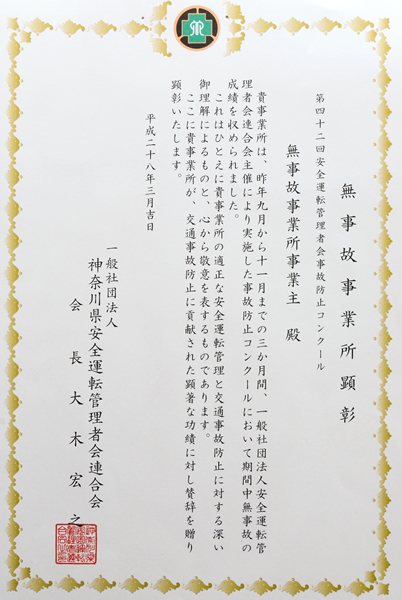 無事故事業所顕彰
第四十二回安全運転管理者会事故防止コンクール
無事故事業所事業主 殿
貴事業所は、昨年九月から十一月までの三か月間、一般社団法人安全運転管
理者会連合会主催により実施した事故防止コンクールにおいて期間中無事故の
成績を収められました。
これはひとえに貴事業所の適正な安全運転管理と交通事故防止に対する深い
御理解によるものと、心から敬意を表するものであります。
ここに貴事業所が、交通事故防止に貢献された顕著な功績に対し賛辞を贈り
顕彰いたします。
平成二十八年三月吉日
一般社団法人
神奈川県安全運転管理者会連合会
会長 大木宏之